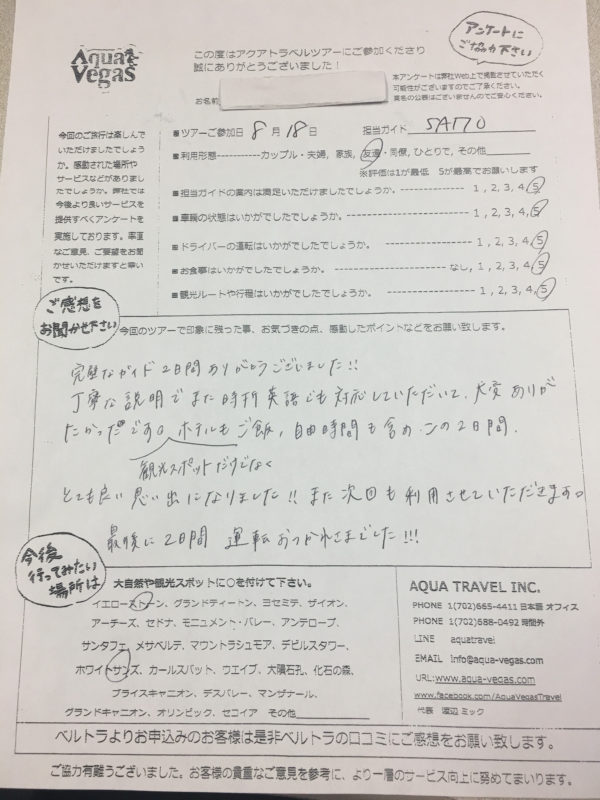 Aqua
Vegas
この度はアクアトラベルツアーにご参加くださり
誠にありがとうございました！
アンケートに
ご協力下さい
本アンケートは弊社Web上で掲載させていただく
可能性がございますのでご了承ください。
実名の公表はございませんのでご安心ください。
お名前
今回のご旅行は楽しんで
いただけましたでしょう
か。感動された場所や
サービスなどがありまし
たでしょうか。弊社では
今後より良いサービスを
提供すべくアンケートを
実施しております。率直
なご意見、ご要望をお聞
かせいただけますと幸い
です。
■ツアーご参加日 8 月 18 日 担当ガイド SAITO
■利用形態-----------カップル・夫婦, 家族, 友達・同僚, ひとりで, その他
※評価は1が最低 5が最高でお願いします
■担当ガイドの案内は満足いただけましたでしょうか。---------------- 1 , 2, 3, 4, 5
■車輌の状態はいかがでしたでしょうか。---------------------------- 1 , 2, 3, 4, 5
■ドライバーの運転はいかがでしたでしょうか。 ---------------------- 1 , 2, 3, 4, 5
■お食事はいかがでしたでしょうか。 ---------------------------- なし, 1, 2, 3, 4, 5
■観光ルートや行程はいかがでしたでしょうか。---------------------- 1 , 2, 3, 4, 5
ご感想を
お聞かせ下さい
今回のツアーで印象に残った事、お気づきの点、感動したポイントなどをお願い致します。
完璧なガイド2日間ありがとうございました!!
丁寧な説明でまた時折英語でも対応していただいて、大変ありが
たかったです。ホテルもご飯, 自由時間も含めこの2日間,
観光スポットだけでなく
とても良い思い出になりました!! また次回も利用させていただきます。
最後に2日間 運転おつかれさまでした!!!
今後
行ってみたい
場所は
大自然や観光スポットに○を付けて下さい。
イエローストーン、グランドティートン、ヨセミテ、ザイオン、
アーチーズ、セドナ、モニュメント・バレー、アンテロープ、
サンタフェ、メサベルテ、マウントラシュモア、デビルスタワー、
ホワイトサンズ、カールスバット、ウエイブ、大隕石孔、化石の森、
ブライスキャニオン、デスバレー、マンザナール、
グランドキャニオン、オリンピック、セコイア その他
AQUA TRAVEL INC.
PHONE 1(702)665-4411 日本語 オフィス
PHONE 1(702)688-0492 時間外
LINE aquatravel
EMAIL info@aqua-vegas.com
URL:www.aqua-vegas.com
www.facebook.com/AquaVegasTravel
代表 渡辺 ミック
ベルトラよりお申込みのお客様は是非ベルトラの口コミにご感想をお願い致します。
ご協力有難うございました。お客様の貴重なご意見を参考に、より一層のサービス向上に努めてまいります。